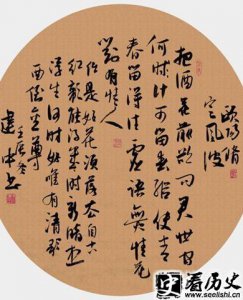 欧阳修
定风波
把酒花前欲问君世间
何计可留春纵使青
春留得住虚語無情花
對有情人
任是好花须落去自古
红颜能得几时新暗想
浮生何时好唯有清歌
倒金尊
壬辰冬
建中书
看历史
www.seelishi.cn